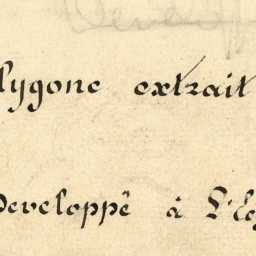 lygone extrait
Developpê à L'Ec